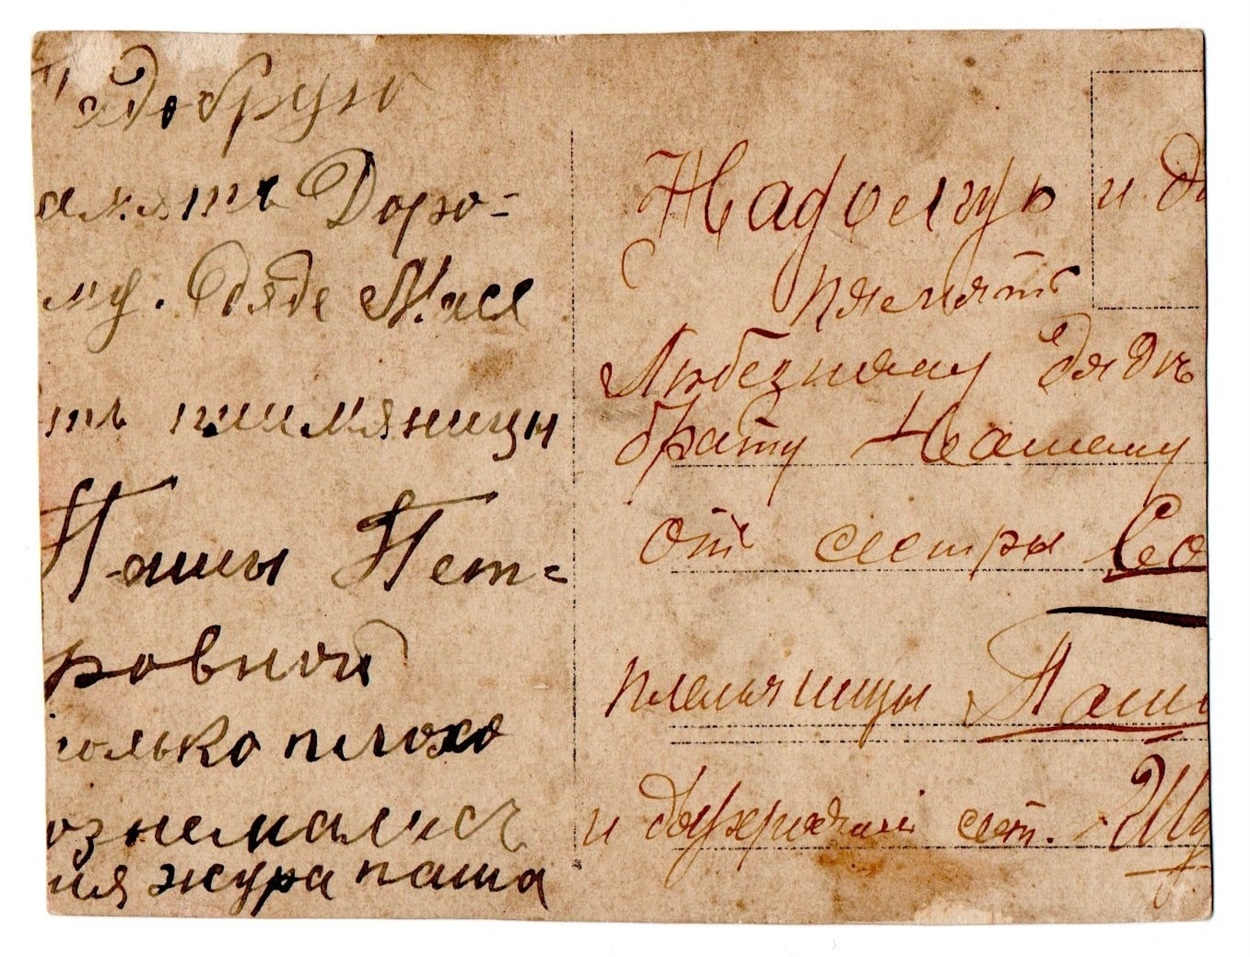 добрую
амять Доро-
му. дяде Мися
ть племяницы
Паши Пет-
ровной
олько плохо
ознемались
ия жура паша
На долгую и до
память
Любезному дядъ
брату Нашему
от сестры Со
племяницы Паши
и двухродной сест.